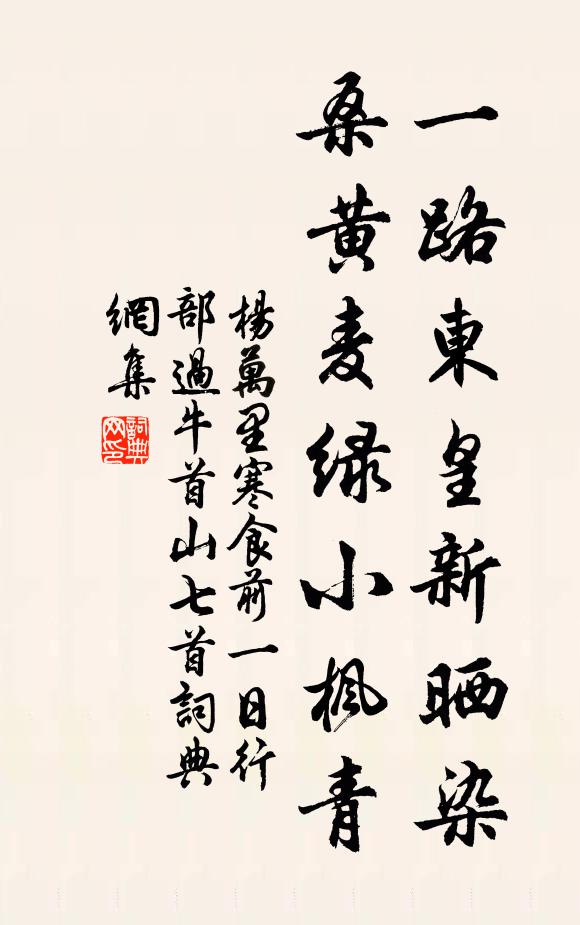 一路東皇新晒染
桑黄麦绿小楓青
楊萬里寒食前一日行
部過牛首山七首詞典
網集
詞典
网印